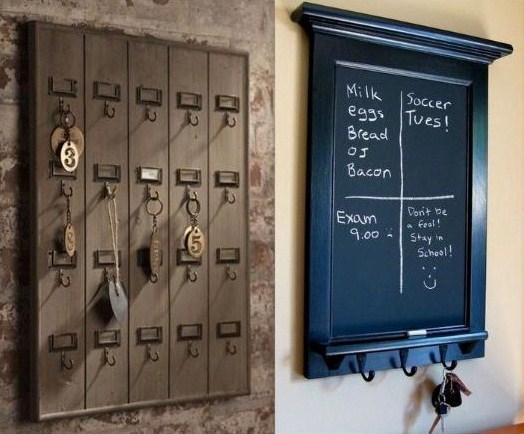 3
5
Milk
eggs
Bread
OJ
Bacon
Soccer
Tues!
Exam
9.00
Don't be
a fool!
Stay in
School!